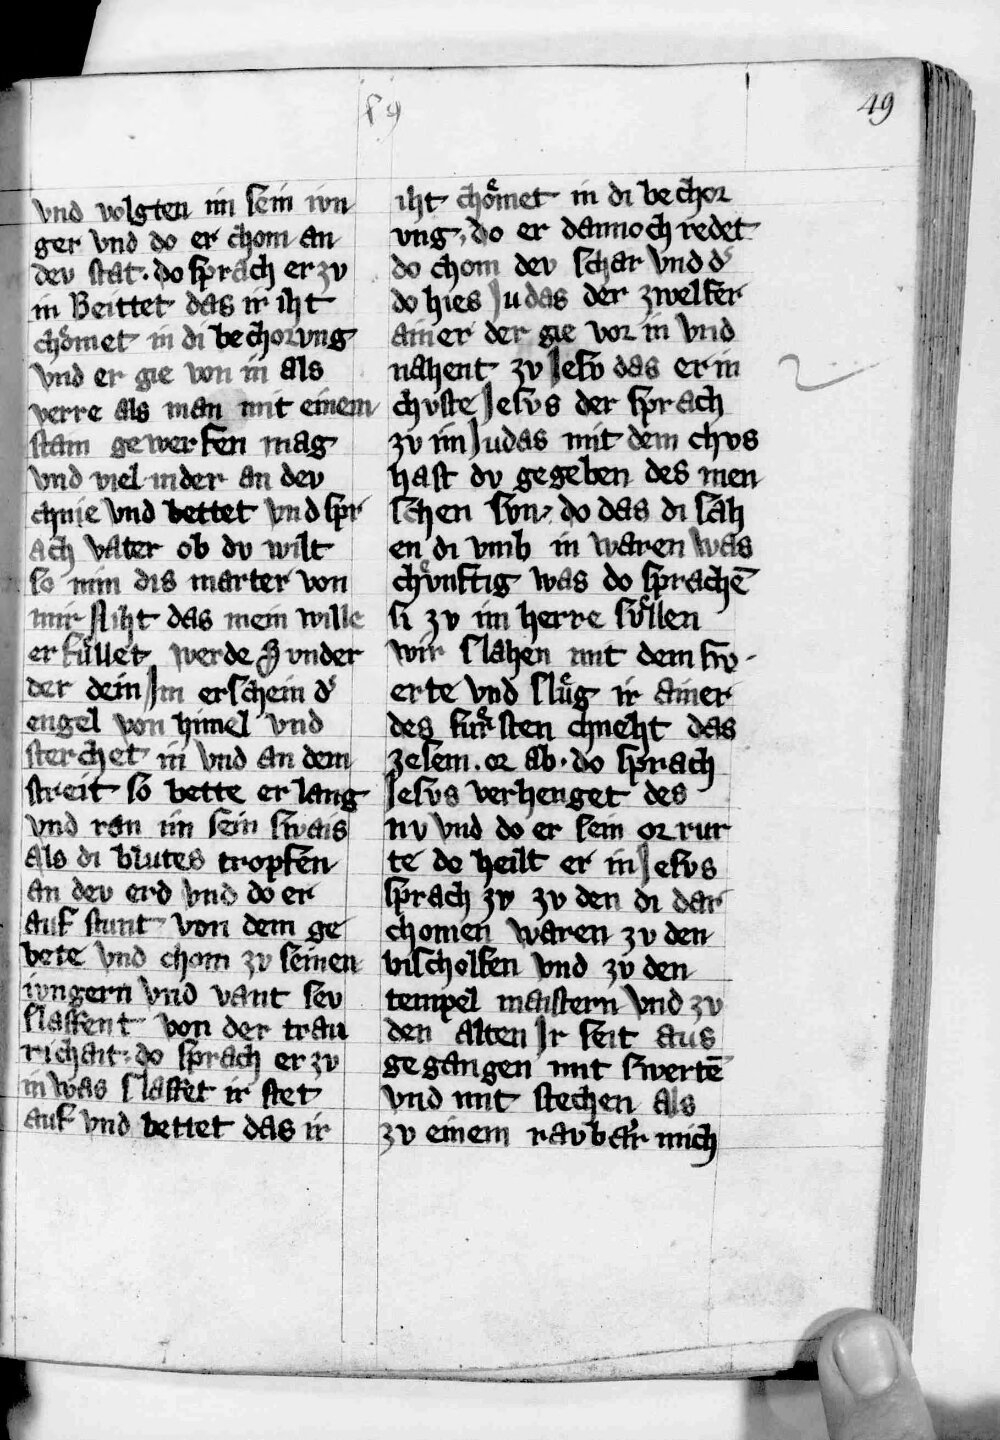 49
vnd volgten im sein ivn
ger vnd do er chom an
dev stat · do sprach er zv
in Beittet das ir iht
chomet in di bechorvng
vnd er gie von in als
verre als man mit einem
stain gewerfen mag
vnd viel nider an dev
chnie vnd bettet vnd spr
ach vater ob dv wilt
so nim dis marter von
mir Niht das mein wille
erfüllet werde Svnder
der dein Im erschein dˢ
engel von himel vnd
sterchet in vnd an dem
streit so bette er lang
vnd ran im sein swais
als di blutes tropfen
an dev erd vnd do er
auf stunt von dem ge
bete vnd chom zv seinen
ivngern vnd vant sev
slaffent von der trau
richait · do sprach er zv
in was slaffet ir stet
auf vnd bettet das ir
iht chömet in di bechor
vng · do er dannoch redet
do chom dev schar vnd dˢ
do hies Judas der zwelfer
ainer der gie vor in vnd
nahent zv Jesv das er in
chvste Jesvs der sprach
zv im Judas mit dem chvs
hast dv gegeben des men
schen svn · do das di sah
en di vmb in waren was
chv̊nftig was do sprachē
si zv im herre sv̊llen
wir slahen mit dem sw ·
erte vnd slůg ir ainer
des fürsten chneht das
zesem · or ab · do sprach
Jesvs verhenget des
nv vnd do er sein or rur
te do heilt er in Jesvs
sprach zv zv den di dar
chomen waren zv den
bischolfen vnd zv den
tempel maistern vnd zv
den alten Ir seit aus
gegangen mit swertē
vnd mit stechen als
zv einem ravbar mich